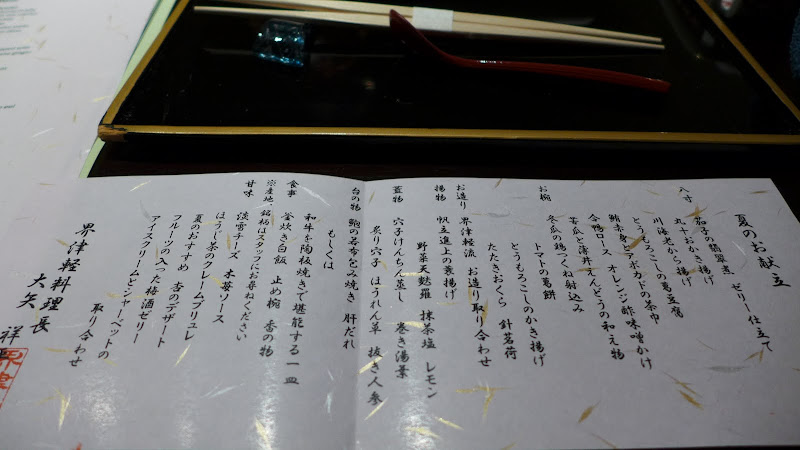 夏のお献立
八寸
茄子の翡翠煮、ゼリー仕立て
丸十おかき揚げ
川海老から揚げ
とうもろこしの葛豆腐
鮪赤身とアボカドの茶巾
合鴨ロース オレンジ酢味噌かけ
苦瓜と薄井えんどうの和え物
トマトの葛餅
お椀
冬瓜の鶏つくね射込み
とうもろこしのかき揚げ
たたきおくら 針茗荷
お造り 界津軽流 お造り取り合わせ
揚物 帆立進上の蓑揚げ
野菜天麩羅 抹茶塩 レモン
蓋物 穴子けんちん蒸し 巻き湯葉
炙り穴子 ほうれん草 抜き人参
台の物 鮑の若布包み焼き 肝だれ
もしくは
和牛を陶板焼きで堪能する一皿
食事 釜炊き白飯 止め椀 香の物
※産地、銘柄はスタッフにお尋ねください
甘味 淡雪チーズ 木苺ソース
ほうじ茶のクレームブリュレ
夏のおすすめ 杏のデザート
フルーツの入った梅酒ゼリー
アイスクリームとシャーベットの
取り合わせ
界津軽料理長
大矢 祥